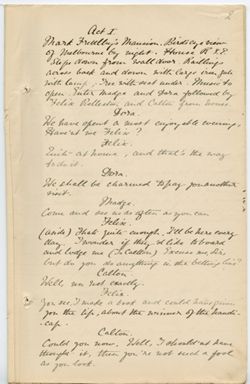 2
Act I
Mark Frettlby's Mansion. Bird's eye view
of Melbourne by night. House R & E
Steps down from wall door. Railing
across back and down with large iron gate
with lamp. Tree with seat under. Music to
open. Enter Madge and Dora followed by
Felix Rolleston and Calton from house.
Dora.
We have spent a most enjoyable evening.
Haven't we Felix?
Felix.
Quite at home, and that's the way
to do it.
Dora.
We shall be charmed to pay you another
visit.
Madge.
Come and see us as often as you can
Felix.
(aside) That's quite enough. I'll be here every
day. I wonder if they'd like to board
and lodge me (To Calton) Excuse me Sir
but do you do anything in the betting line?
Calton.
Well, um not exactly.
Felix
You see I make a book and could have given
you the life, about the winner of the handi-
cap.
Calton.
Could you now. Well, I should not have
thought it, then you're not such a fool
as you look.